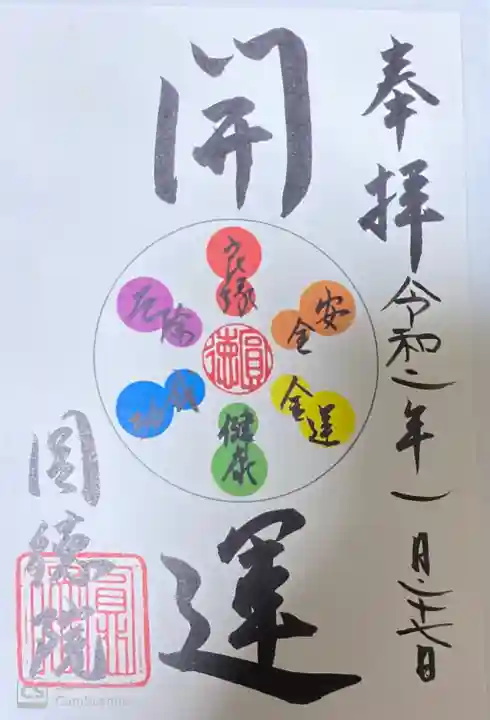 奉拝
令和二年一月二十七日
開運
良縁
安全
金運
健康
成功
厄除
圓徳
圓徳院
CS CamScanner